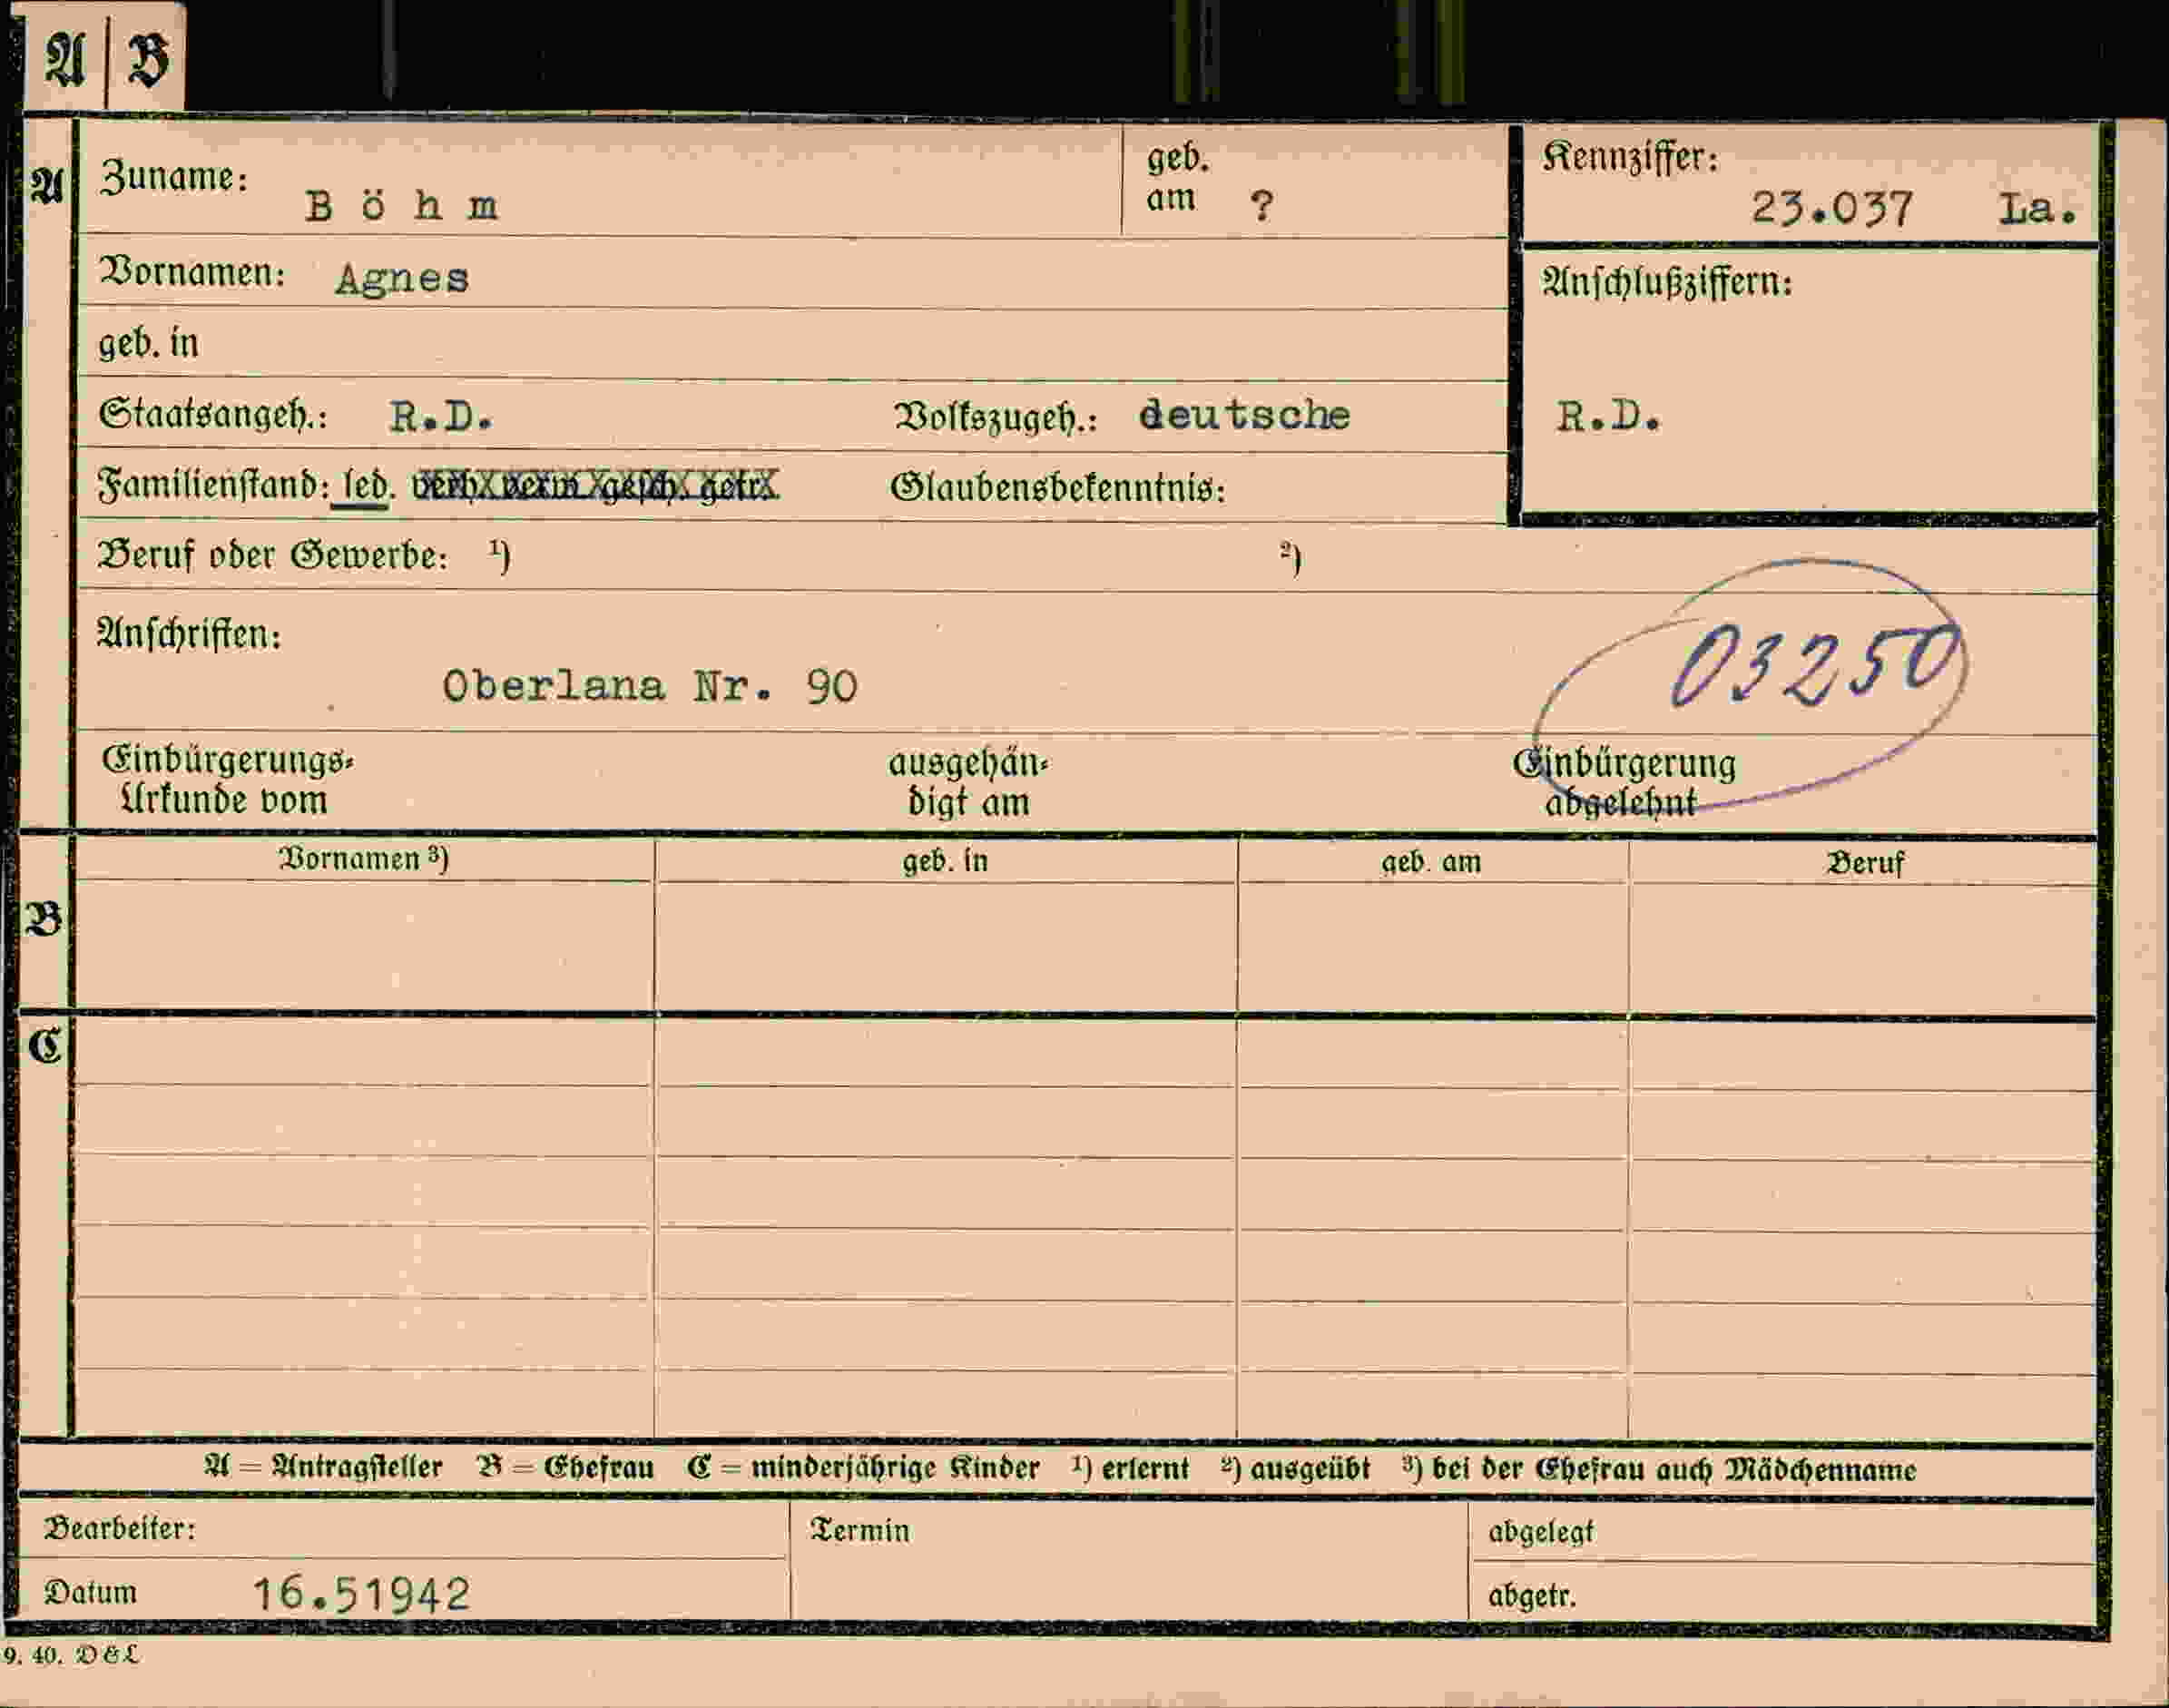 A | B
A
Zuname: Böhm
geb. am ?
Kennziffer: 23.037 La.
Vornamen: Agnes
Anschlußziffern:
geb. in
Staatsangeh.: R.D. Volkszugeh.: deutsche
R.D.
Familienstand: led. verh. verw. gesch. getr. Glaubensbekenntnis:
Beruf oder Gewerbe: ¹) ²)
Anschriften:
Oberlana Nr. 90
03250
Einbürgerungs- ausgehän- Einbürgerung
Urkunde vom digt am abgelehnt
Vornamen ³) geb. in geb. am Beruf
B
C
A = Antragsteller B = Ehefrau C = minderjährige Kinder ¹) erlernt ²) ausgeübt ³) bei der Ehefrau auch Mädchenname
Bearbeiter: Termin abgelegt
Datum 16.51942 abgetr.
9. 40. D & L